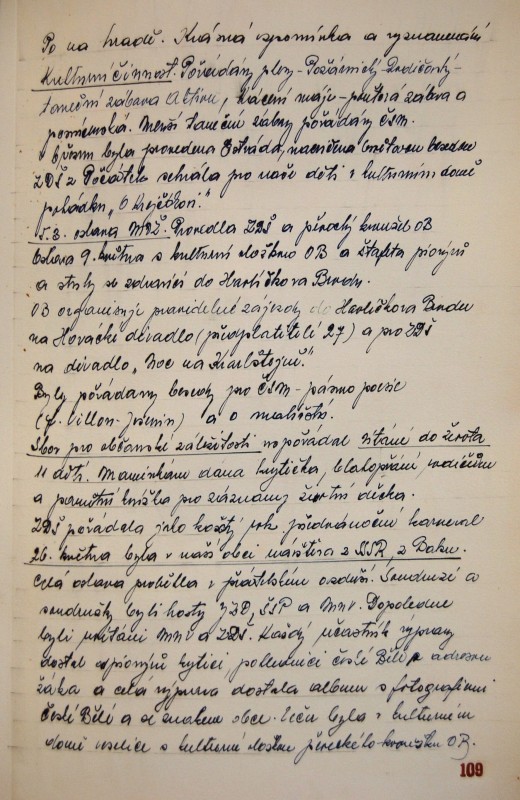 Po na hradě. Krásná vzpomínka a vyznamenání
Kulturní činnost. Pořádány plesy - Požárnický, Rodičovský -
taneční zábava Aktivu, kácení máje - pouťová zábava a
posvícenská. Menší taneční zábavy pořádány ČSM.
V březnu byla provedena Estráda, nacvičena
ZDŠ z Počátek sehrála pro naše děti v kulturním domě
pohádku „O Krejčíkovi".
5.3. oslava MDŽ. Provedla ZDŠ a pěvecký kroužek OB
Oslava 9. května s kulturní vložkou OB a štafeta pionýrů
a svazu se zdravicí do Havlíčkova Brodu.
OB organizuje pravidelné zájezdy do Havlíčkova Brodu
na Horácké divadlo (předplatitelé 27) a pro ZDŠ
na divadlo „Noc na Karlštejně".
Byly pořádány besedy pro ČSM - pásmo poezie
(f. Villon - Jesenin) a o malířství.
Sbor pro občanské záležitosti uspořádal vítání do života
11 dětí. Maminkám dána kytička, blahopřání rodičům
a pamětní knížka pro záznamy životní děcka.
ZDŠ pořádala jako každý rok předvánoční karneval
26. května byla v naší obci návštěva z SSR, z Baku.
Celá oslava proběhla v přátelském ovzduší. Soudruzi a
soudružky byli hosty JZD, ŠSP a MNV. Dopoledne
byli uvítáni MNV a ZDŠ. Každý účastník výpravy
dostal od pionýrů kytici pohlednici České Bělé s adresou
žáka a celá výprava dostala album s fotografiemi
České Bělé a se znakem obce. Večer byla v kulturním
domě veselice s kulturní vložkou pěveckého kroužku OB.
109